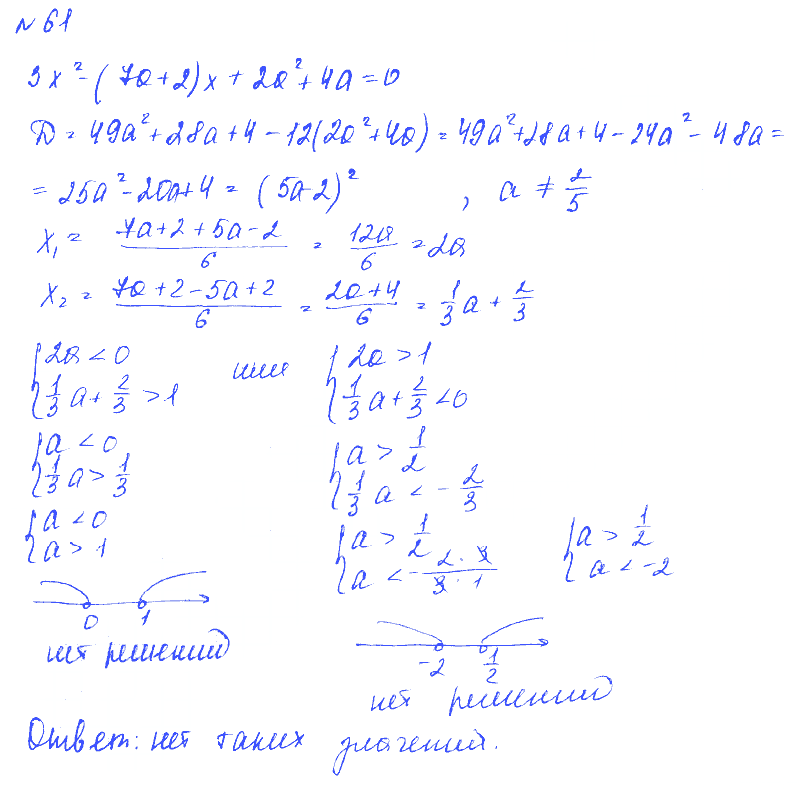 № 61
3x² - (7a+2)x + 2a² + 4a = 0
D = 49a² + 28a + 4 - 12(2a² + 4a) = 49a² + 28a + 4 - 24a² - 48a =
= 25a² - 20a + 4 = (5a-2)² , a ≠ 2/5
x₁ = (7a + 2 + 5a - 2)/6 = 12a/6 = 2a
x₂ = (7a + 2 - 5a + 2)/6 = (2a + 4)/6 = 1/3 a + 2/3
{ 2a < 0 или { 2a > 1
{ 1/3 a + 2/3 > 1 { 1/3 a + 2/3 < 0
{ a < 0 { a > 1/2
{ 1/3 a > 1/3 { 1/3 a < - 2/3
{ a < 0 { a > 1/2 { a > 1/2
{ a > 1 { a < - (2 · 3)/(3 · 1) { a < -2
0 1
нет решений
-2 1/2
нет решений
Ответ: нет таких значений.